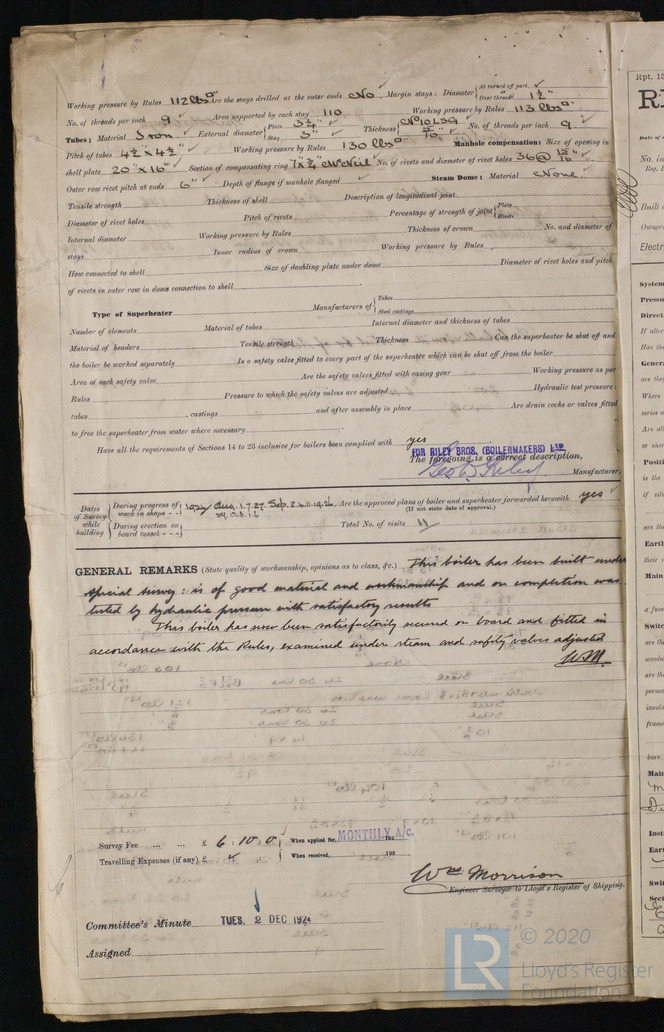 Working pressure by Rules 112 lbs□" Are the stays drilled at the outer ends No. Margin stays: Diameter { At turned off part. Over threads 1½"
No. of threads per inch 9 Area supported by each stay 110 Working pressure by Rules 113 lbs□"
Tubes; Material Iron External diameter { Plain 3¼" Stay 3" Thickness { No 10 LSG 5/16" No. of threads per inch 9.
Pitch of tubes 4½" x 4½" Working pressure by Rules 130 lbs□" Manhole compensation: Size of opening in
shell plate 20" x 16" Section of compensating ring 7" x ¾" McNeil No. of rivets and diameter of rivet holes 36 @ 15/16"
Outer row rivet pitch at ends 6" Depth of flange if manhole flanged Steam Dome: Material None
Tensile strength Thickness of shell Description of longitudinal joint
Diameter of rivet holes Pitch of rivets Percentage of strength of joint { Plate Rivets
Internal diameter Working pressure by Rules Thickness of crown No. and diameter of
stays Inner radius of crown Working pressure by Rules
How connected to shell Size of doubling plate under dome Diameter of rivet holes and pitch
of rivets in outer row in dome connection to shell
Type of Superheater Manufacturers of { Tubes Steel castings
Number of elements Material of tubes Internal diameter and thickness of tubes
Material of headers Tensile strength Thickness Can the superheater be shut off and
the boiler be worked separately Is a safety valve fitted to every part of the superheater which can be shut off from the boiler
Area of each safety valve Are the safety valves fitted with easing gear Working pressure as per
Rules Pressure to which the safety valves are adjusted Hydraulic test pressure:
tubes , castings and after assembly in place Are drain cocks or valves fitted
to free the superheater from water where necessary
Have all the requirements of Sections 14 to 23 inclusive for boilers been complied with yes
FOR RILEY BROS. (BOILERMAKERS) LTD
The foregoing is a correct description,
Manufacturer.
Dates of Survey while building { During progress of work in shops - - During erection on board vessel - - - }
1924 Aug. 1. 7. 27. Sep. 2. 4. 11. 19. 26.
Are the approved plans of boiler and superheater forwarded herewith yes
(If not state date of approval.)
Total No. of visits 11
GENERAL REMARKS (State quality of workmanship, opinions as to class, &c.) This boiler has been built under
special survey: is of good material and workmanship and on completion was
tested by hydraulic pressure with satisfactory results
This boiler has now been satisfactorily secured on board and fitted in
accordance with the Rules, examined under steam and safety valves adjusted
W.M.
Survey Fee ... ... £ 6 : 10 : 0 When applied for, MONTHLY A/c. 192
Travelling Expenses (if any) £ When received, 192
Wm Morrison
Engineer Surveyor to Lloyd's Register of Shipping.
Committee's Minute TUES. 2 DEC 1924
Assigned
LR © 2020
Lloyd's Register
Foundation
Rpt. 13